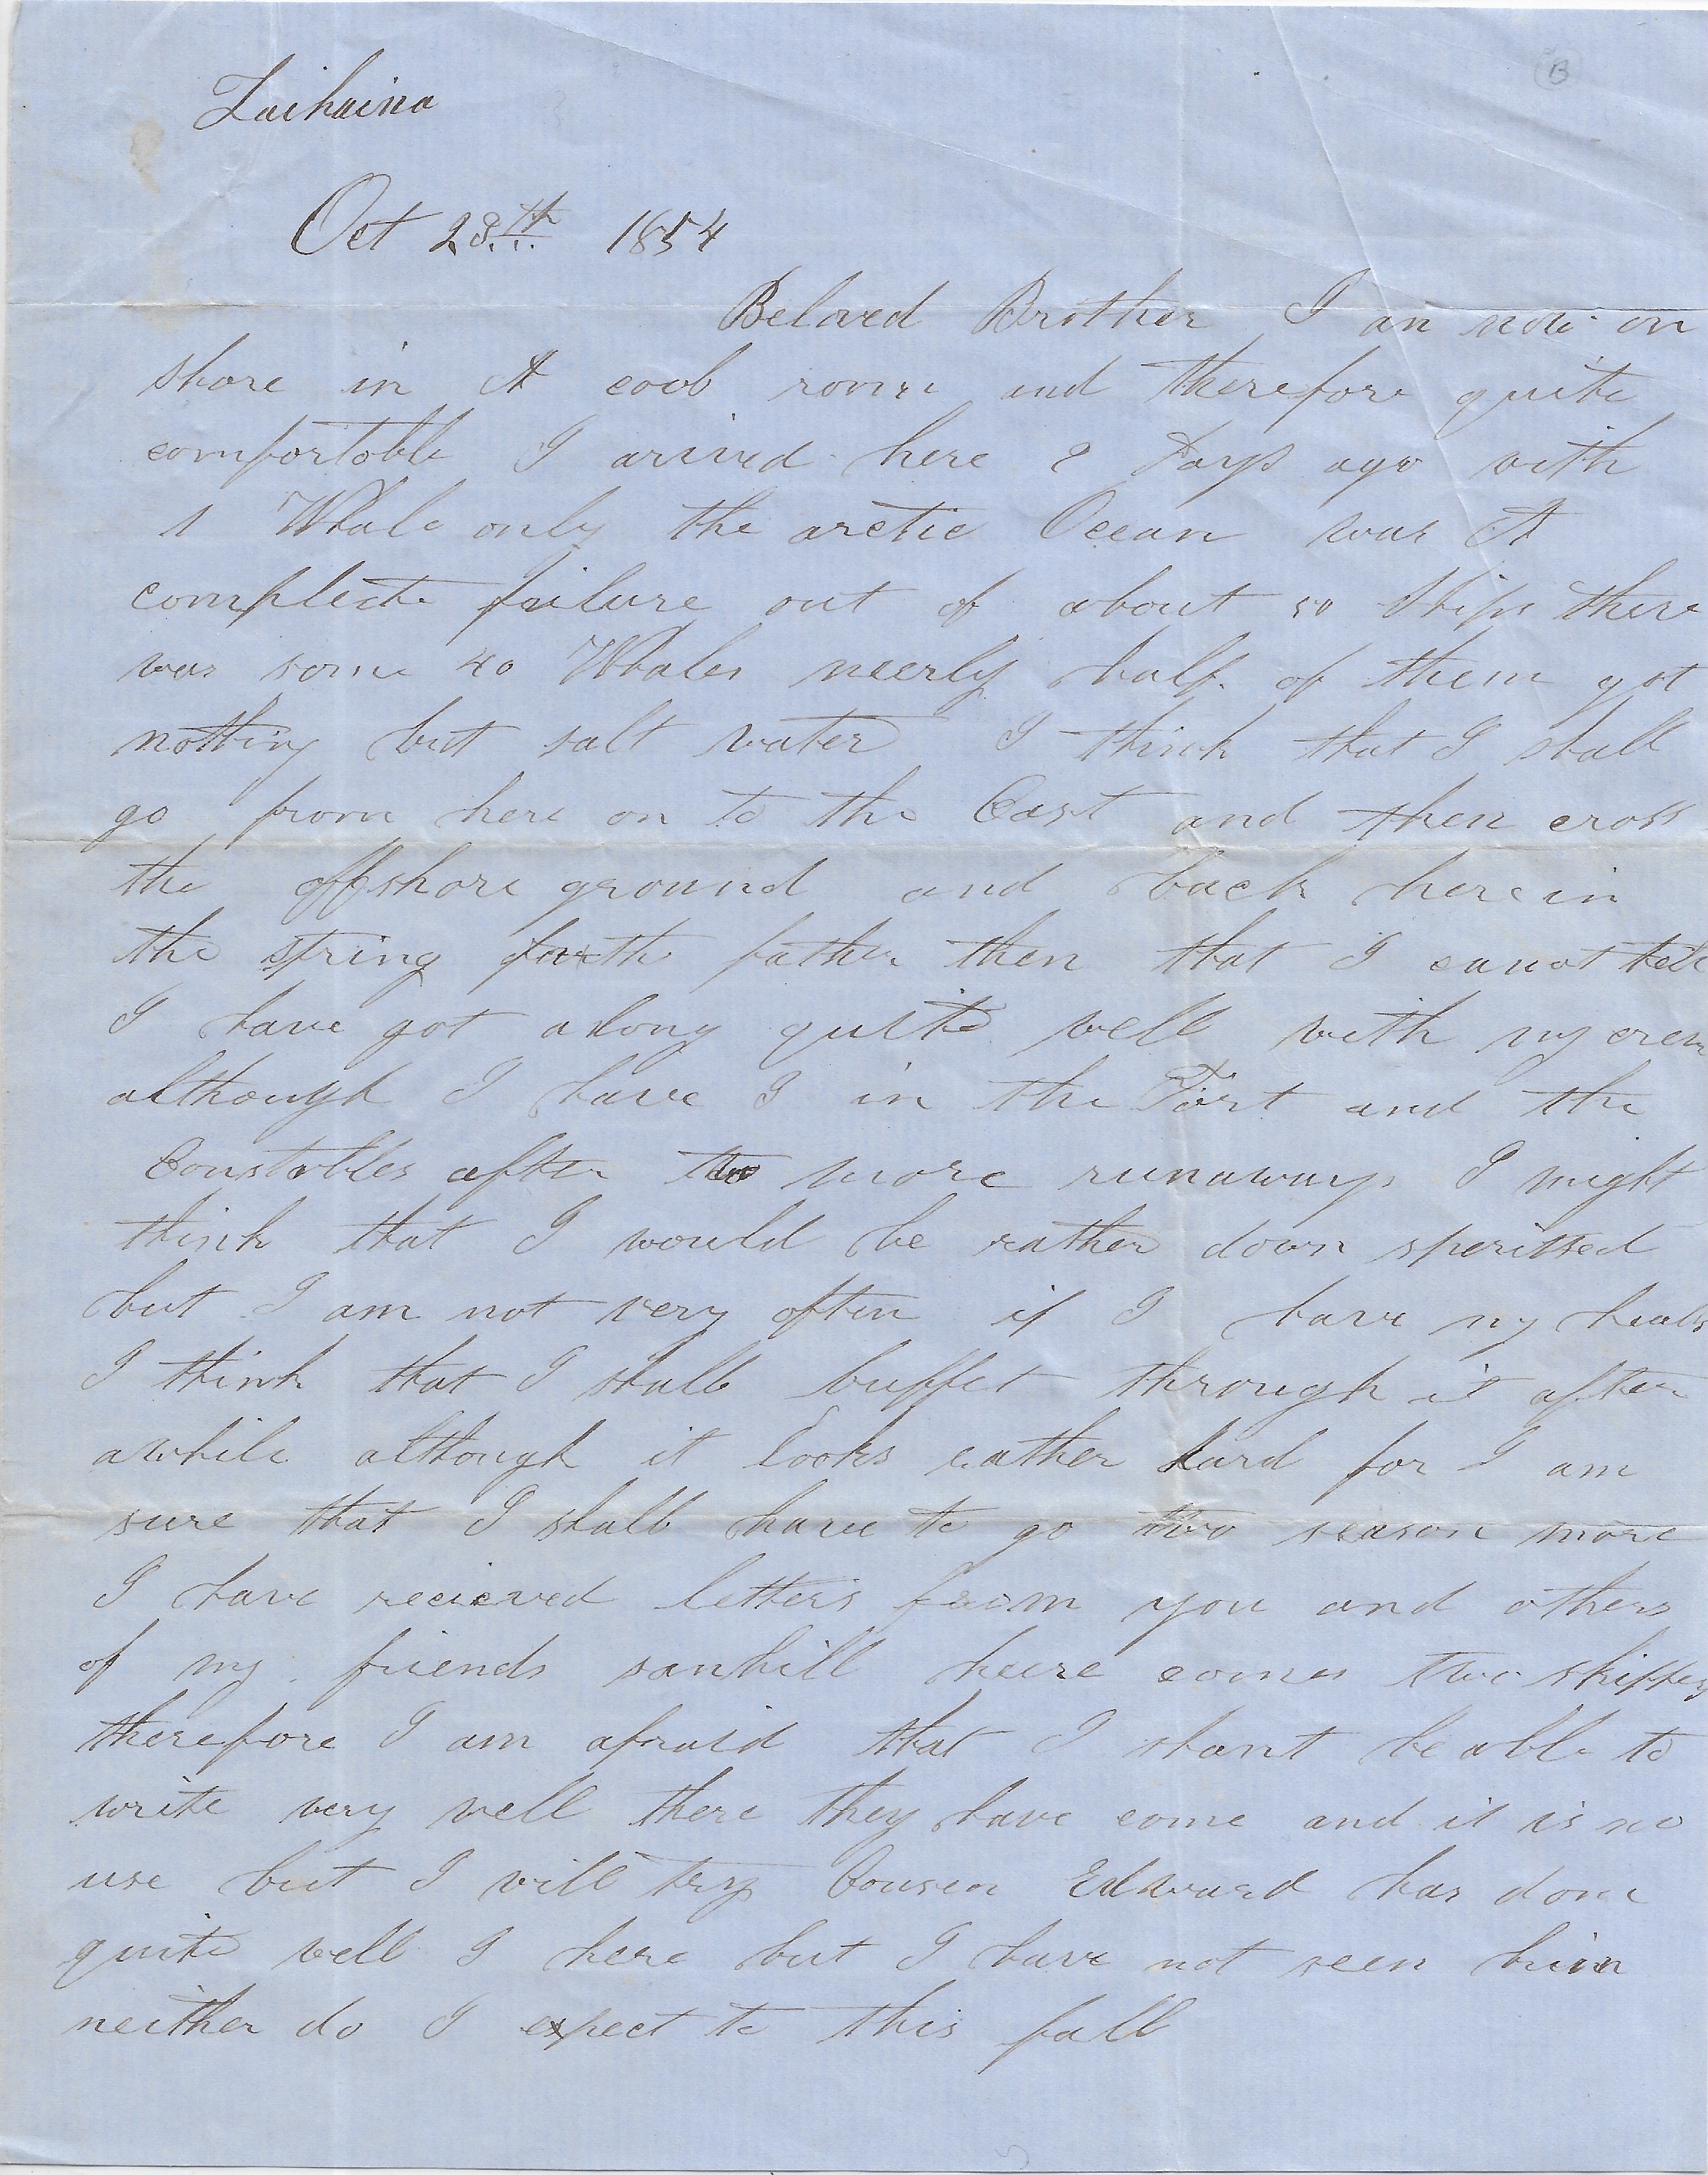 Laihaina
Oct 28th 1854
Beloved Brother I an now on
shore in A cool room and therefore quite
comfortable I arived here 2 Days ago with
1 Whale only the arctic Ocean was A
complecte failure out of about 50 Ships there
was some 40 Whales neerly half of them got
nothing but salt water I think that I shall
go from here on to the Cast and then cross
the offshore ground and back here in
the spring farth father then that I canot tell
I have got along quite well with my crew
although I have 3 in the Fort and the
Constables after two more runaways I might
think that I would be rather down sperited
but I am not very often if I have my health
I think that I shall buffet through it after
awhile although it looks rather hard for I am
sure that I shall have to go two season more
I have recieved letters from you and others
of my friends here comes two skippers
therefore I am afraid that I shant be able to
write very well there they have come and it is no
use but I will try Cousen Edward has done
quite well I here but I have not seen him
neither do I expect to this fall